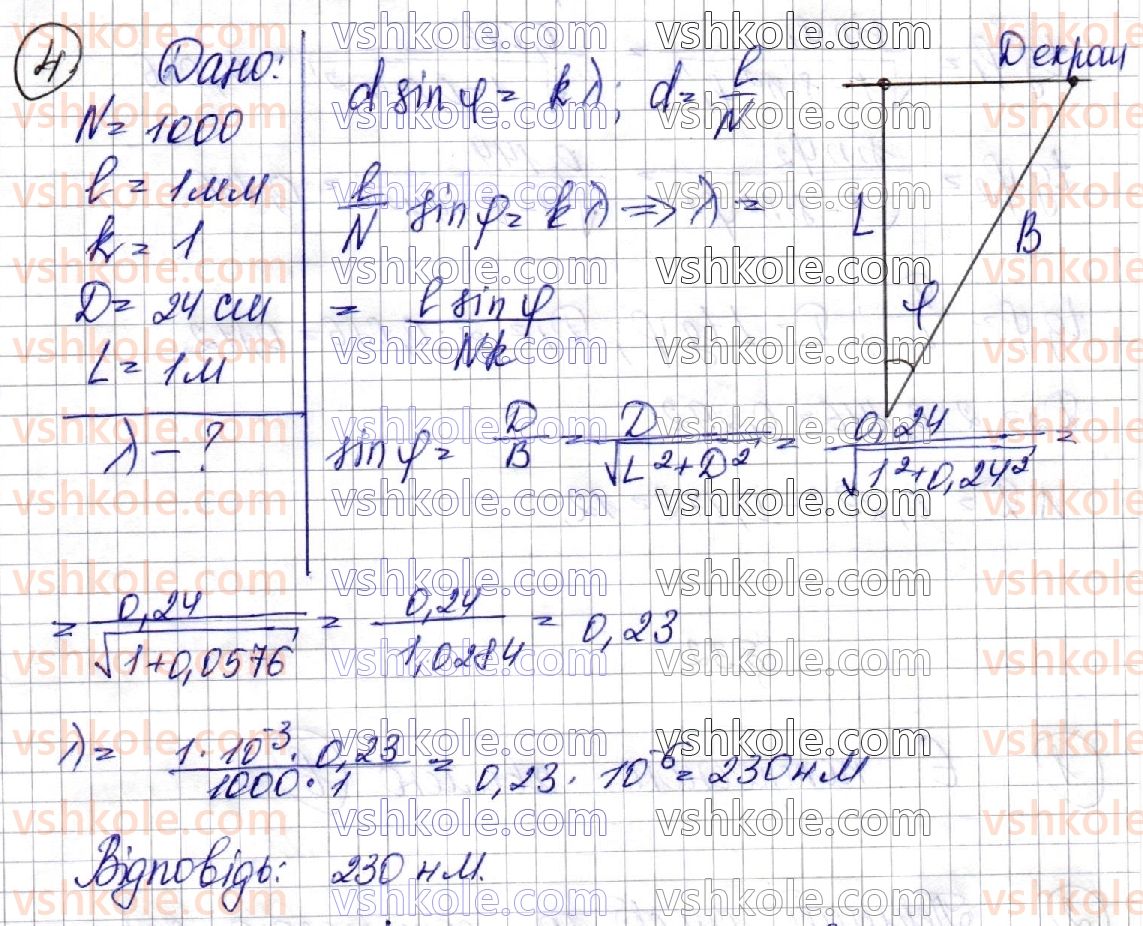 4 Дано:
N = 1000
l = 1 мм
k = 1
D = 24 см
L = 1 м
λ - ?
d sin φ = kλ; d = l/N
l/N sin φ = kλ => λ =
= l sin φ / Nk
D екран
L
B
φ
sin φ = D/B = D/√(L² + D²) = 0,24/√(1² + 0,24²) =
= 0,24/√(1+0,0576) = 0,24/1,0284 = 0,23
λ = 1 · 10⁻³ · 0,23 / 1000 · 1 = 0,23 · 10⁻⁶ = 230 нм
Відповідь: 230 нм.
vshkole.com